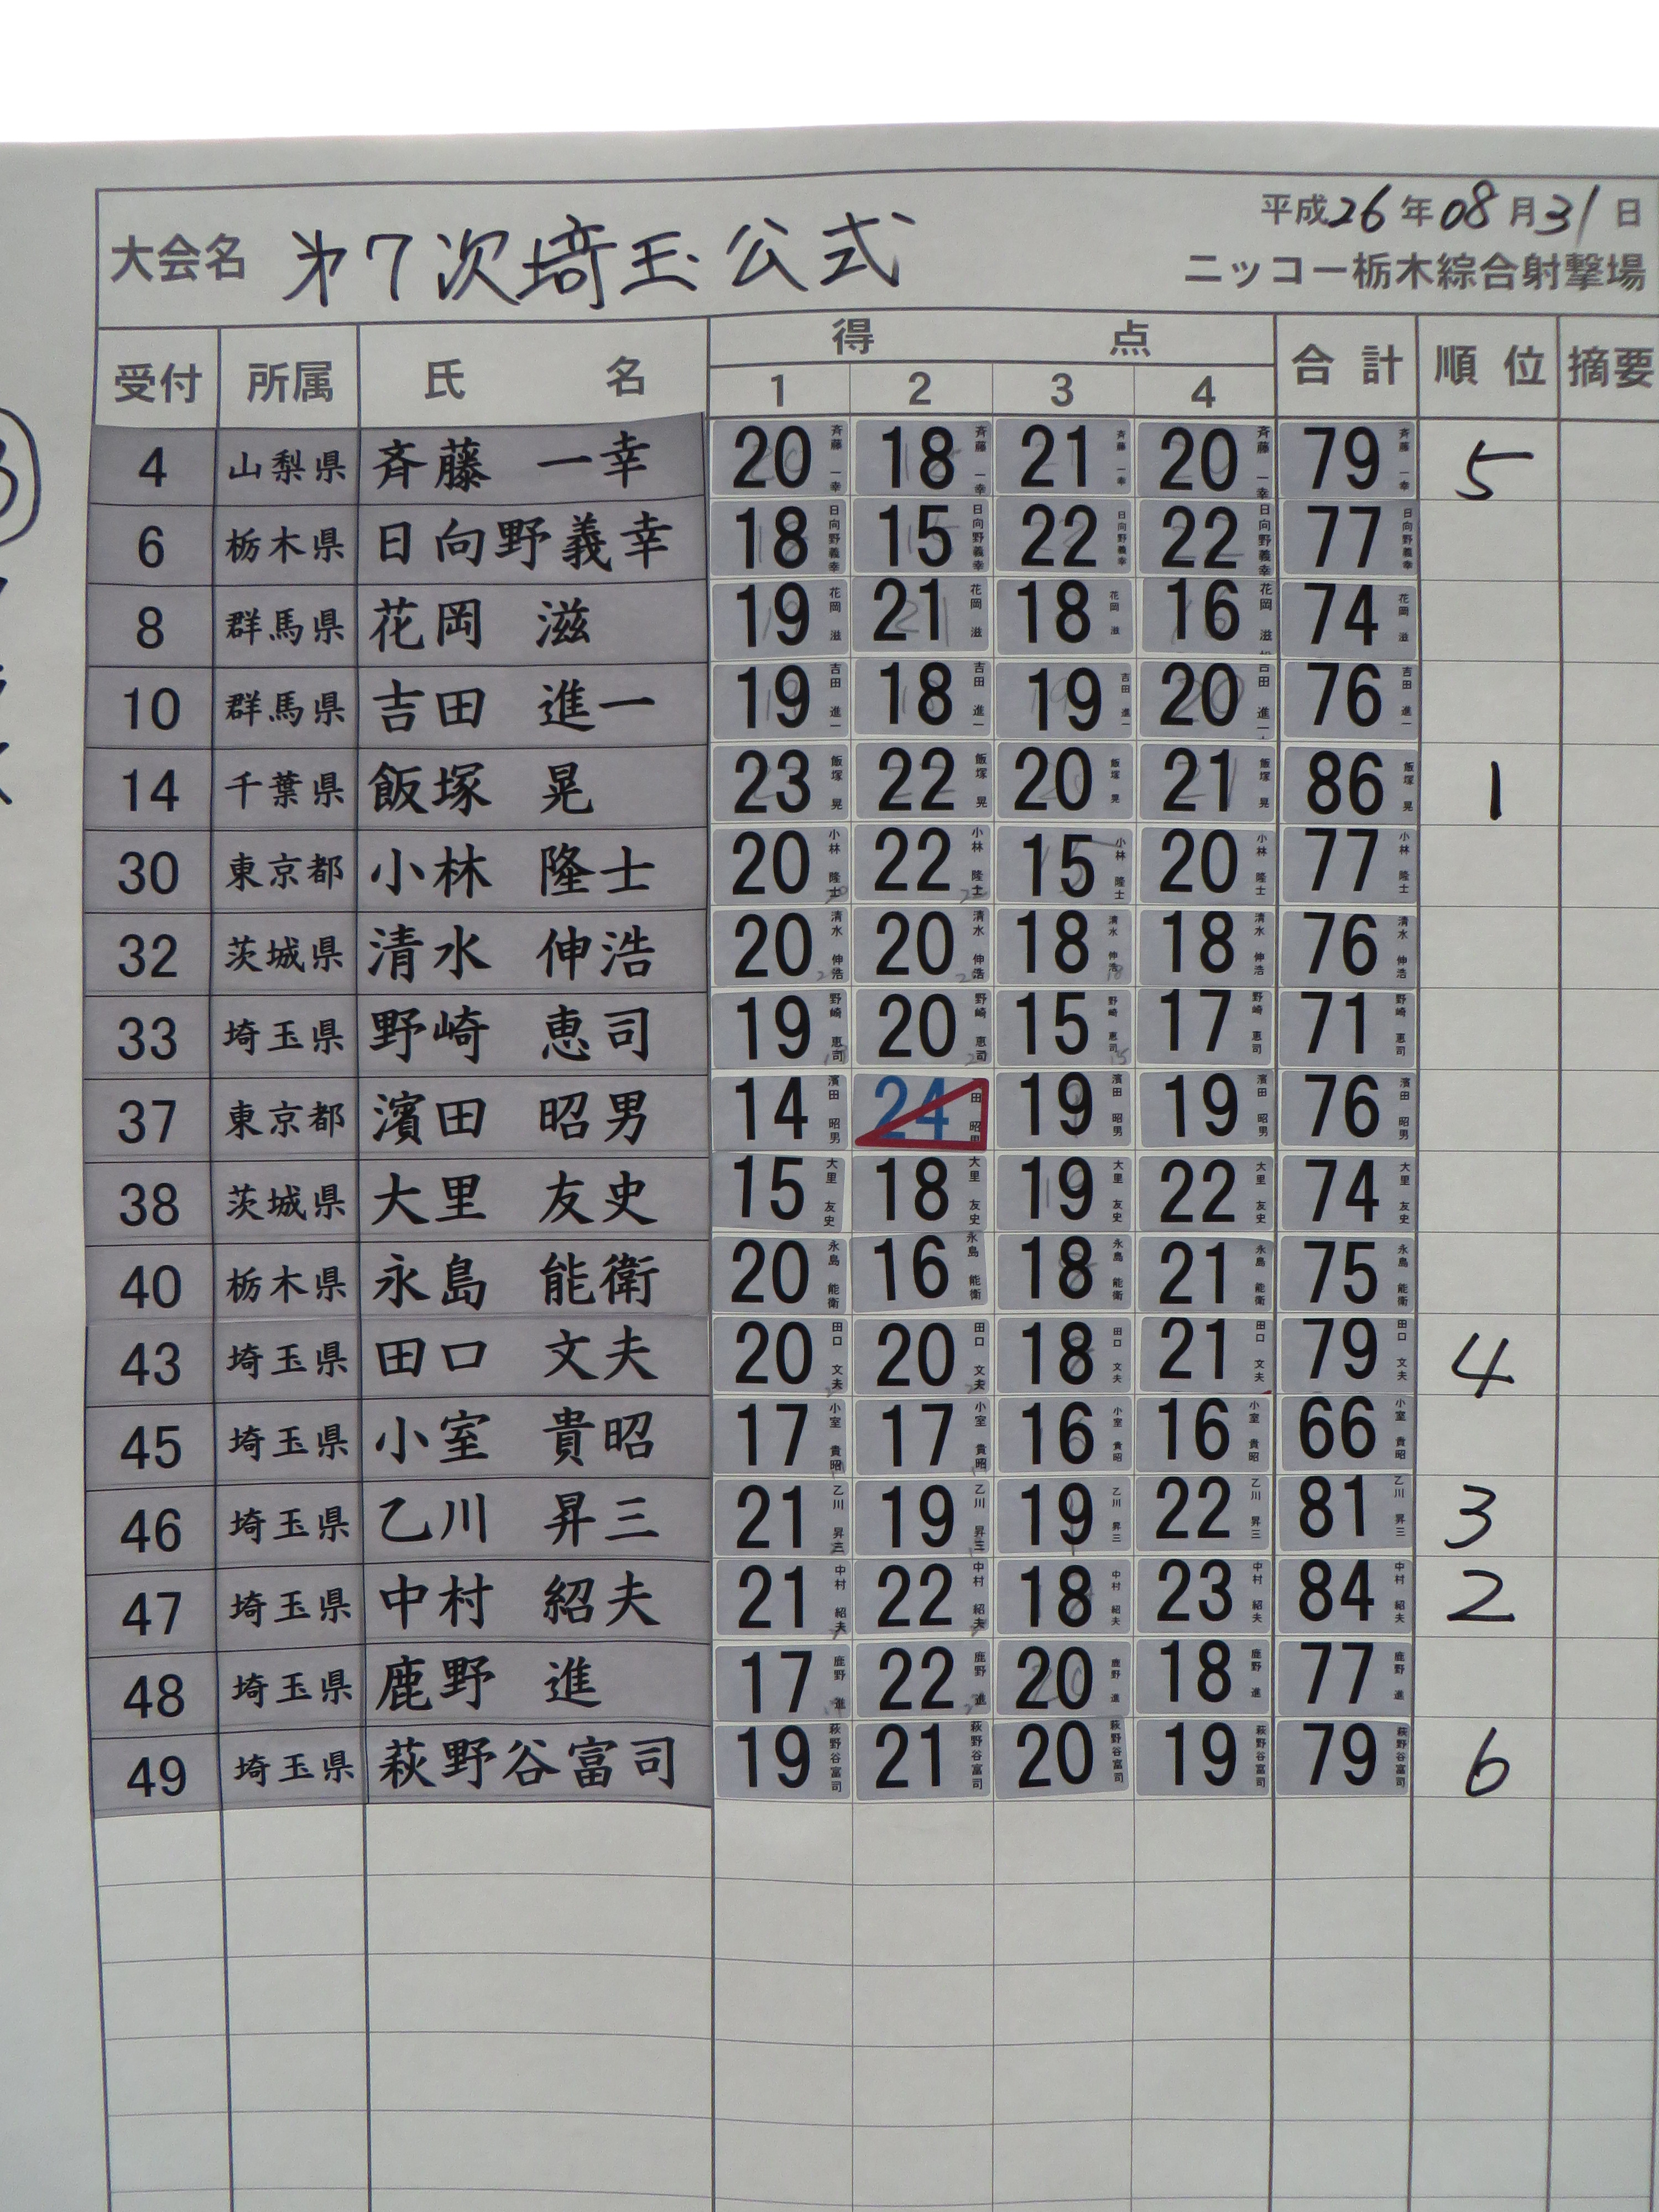 平成26年08月31日
大会名 第7次埼玉公式
ニッコー栃木綜合射撃場
受付 所属 氏名 得点 合計 順位 摘要
1 2 3 4
4 山梨県 斉藤 一幸 20 18 21 20 79 5
6 栃木県 日向野義幸 18 15 22 22 77
8 群馬県 花岡 滋 19 21 18 16 74
10 群馬県 吉田 進一 19 18 19 20 76
14 千葉県 飯塚 晃 23 22 20 21 86 1
30 東京都 小林 隆士 20 22 15 20 77
32 茨城県 清水 伸浩 20 20 18 18 76
33 埼玉県 野崎 恵司 19 20 15 17 71
37 東京都 濱田 昭男 14 24 19 19 76
38 茨城県 大里 友史 15 18 19 22 74
40 栃木県 永島 能衛 20 16 18 21 75
43 埼玉県 田口 文夫 20 20 18 21 79 4
45 埼玉県 小室 貴昭 17 17 16 16 66
46 埼玉県 乙川 昇三 21 19 19 22 81 3
47 埼玉県 中村 紹夫 21 22 18 23 84 2
48 埼玉県 鹿野 進 17 22 20 18 77
49 埼玉県 萩野谷富司 19 21 20 19 79 6